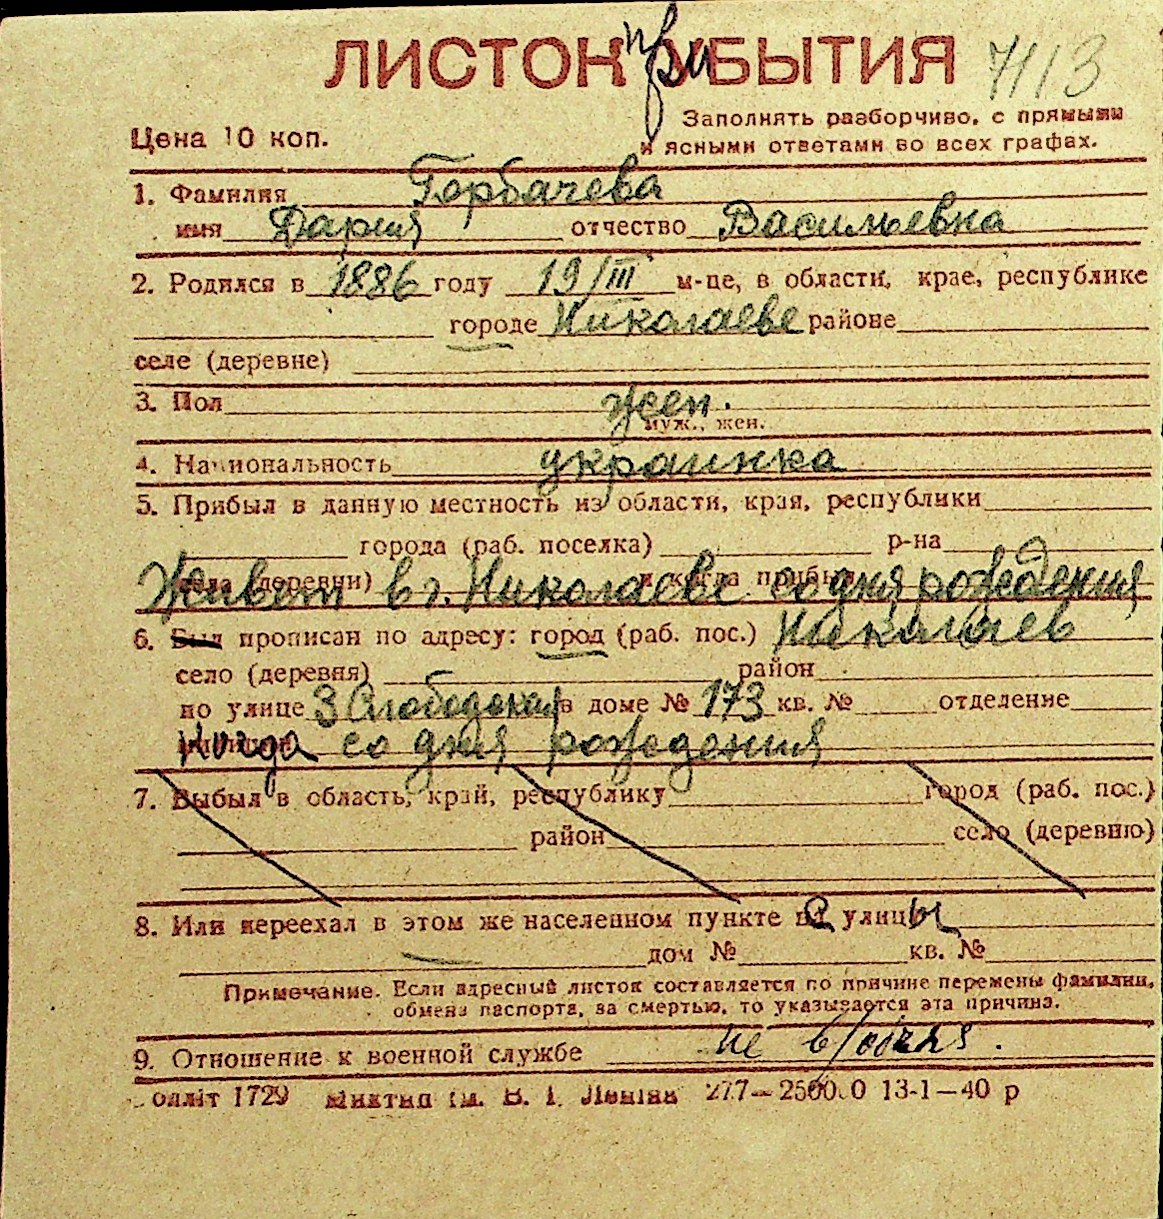 ЛИСТОК приБЫТИЯ 7113
Заполнять разборчиво, с прямыми
Цена 10 коп. и ясными ответами во всех графах.
1. Фамилия Горбачева
имя Дария отчество Васильевна
2. Родился в 1886 году 19/III м-це, в области, крае, республике
городе Николаеве районе
селе (деревне)
3. Пол жен.
муж., жен.
4. Национальность украинка
5. Прибыл в данную местность из области, края, республики
города (раб. поселка) р-на
села (деревни) и когда прибыл
Живет в г. Николаеве со дня рождения
6. Был прописан по адресу: город (раб. пос.) Николаев
село (деревня) район
по улице 3 Слободская в доме № 173 кв. № отделение
милиции
Когда со дня рождения
7. Выбыл в область, край, республику город (раб. пос.)
район село (деревню)
8. Или переехал в этом же населенном пункте с улицы
дом № кв. №
Примечание. Если адресный листок составляется по причине перемены фамилии,
обмена паспорта, за смертью, то указывается эта причина.
9. Отношение к военной службе не в/обяз.
1729 277—25000 13-1—40 р